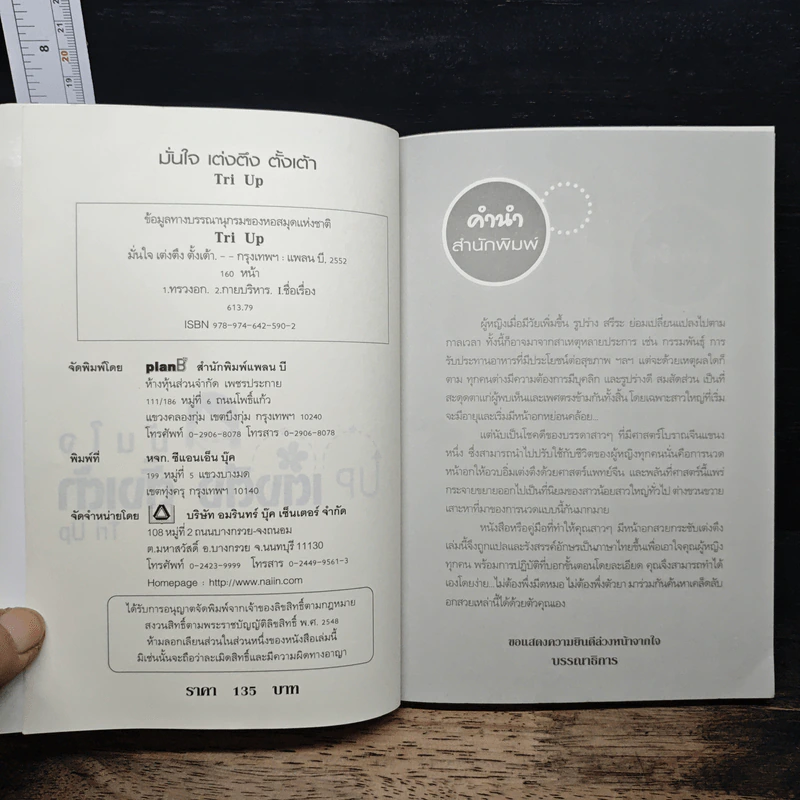 8
21
20
19
มั่นใจ เต่งตึง ตั้งเต้า
Tri Up
ข้อมูลทางบรรณานุกรมของหอสมุดแห่งชาติ
Tri Up
มั่นใจ เต่งตึง ตั้งเต้า. -- กรุงเทพฯ : แพลน บี, 2552
160 หน้า
1.ทรวงอก. 2.กายบริหาร. I.ชื่อเรื่อง
613.79
ISBN 978-974-642-590-2
จัดพิมพ์โดย planB สำนักพิมพ์แพลน บี
ห้างหุ้นส่วนจำกัด เพชรประกาย
111/186 หมู่ที่ 6 ถนนโพธิ์แก้ว
แขวงคลองกุ่ม เขตบึงกุ่ม กรุงเทพฯ 10240
โทรศัพท์ 0-2906-8078 โทรสาร 0-2906-8078
พิมพ์ที่ หจก. ซีแอนเอ็น บุ๊ค
199 หมู่ที่ 5 แขวงบางมด
เขตทุ่งครุ กรุงเทพฯ 10140
จัดจำหน่ายโดย บริษัท อมรินทร์ บุ๊ค เซ็นเตอร์ จำกัด
108 หมู่ที่ 2 ถนนบางกรวย-จงถนอม
ต.มหาสวัสดิ์ อ.บางกรวย จ.นนทบุรี 11130
โทรศัพท์ 0-2423-9999 โทรสาร 0-2449-9561-3
Homepage : http://www.naiin.com
ได้รับการอนุญาตจัดพิมพ์จากเจ้าของลิขสิทธิ์ตามกฎหมาย
สงวนสิทธิ์ตามพระราชบัญญัติลิขสิทธิ์ พ.ศ. 2548
ห้ามลอกเลียนส่วนในส่วนหนึ่งของหนังสือเล่มนี้
มิเช่นนั้นจะถือว่าละเมิดสิทธิ์และมีความผิดทางอาญา
ราคา 135 บาท
คำนำ
สำนักพิมพ์
ผู้หญิงเมื่อมีวัยเพิ่มขึ้น รูปร่าง สรีระ ย่อมเปลี่ยนแปลงไปตาม
กาลเวลา ทั้งนี้ก็อาจมาจากสาเหตุหลายประการ เช่น กรรมพันธุ์ การ
รับประทานอาหารที่มีประโยชน์ต่อสุขภาพ ฯลฯ แต่จะด้วยเหตุผลใดก็
ตาม ทุกคนต่างมีความต้องการมีบุคลิก และรูปร่างดี สมสัดส่วน เป็นที่
สะดุดตาแก่ผู้พบเห็นและเพศตรงข้ามกันทั้งสิ้น โดยเฉพาะสาวใหญ่ที่เริ่ม
จะมีอายุและเริ่มมีหน้าอกหย่อนคล้อย...
แต่นับเป็นโชคดีของบรรดาสาวๆ ที่มีศาสตร์โบราณจีนแขนง
หนึ่ง ซึ่งสามารถนำไปปรับใช้กับชีวิตของผู้หญิงทุกคนนั่นคือการนวด
หน้าอกให้อวบอิ่มเต่งตึงด้วยศาสตร์แพทย์จีน และพลันที่ศาสตร์นี้แพร่
กระจายขยายออกไปเป็นที่นิยมของสาวน้อยสาวใหญ่ทั่วไป ต่างชวนขวาย
เสาะหาที่มาของการนวดแบบนี้กันมากมาย
หนังสือหรือคู่มือที่ทำให้คุณสาวๆ มีหน้าอกสวยกระชับเต่งตึง
เล่มนี้จึงถูกแปลและรังสรรค์อักษรเป็นภาษาไทยขึ้นเพื่อเอาใจคุณผู้หญิง
ทุกคน พร้อมการปฏิบัติที่บอกขั้นตอนโดยละเอียด คุณจึงสามารถทำได้
เองโดยง่าย...ไม่ต้องพึ่งมีดหมอ ไม่ต้องพึ่งตัวยา มาร่วมกันค้นหาเคล็ดลับ
อกสวยเหล่านี้ได้ด้วยตัวคุณเอง
ขอแสดงความยินดีล่วงหน้าจากใจ
บรรณาธิการ